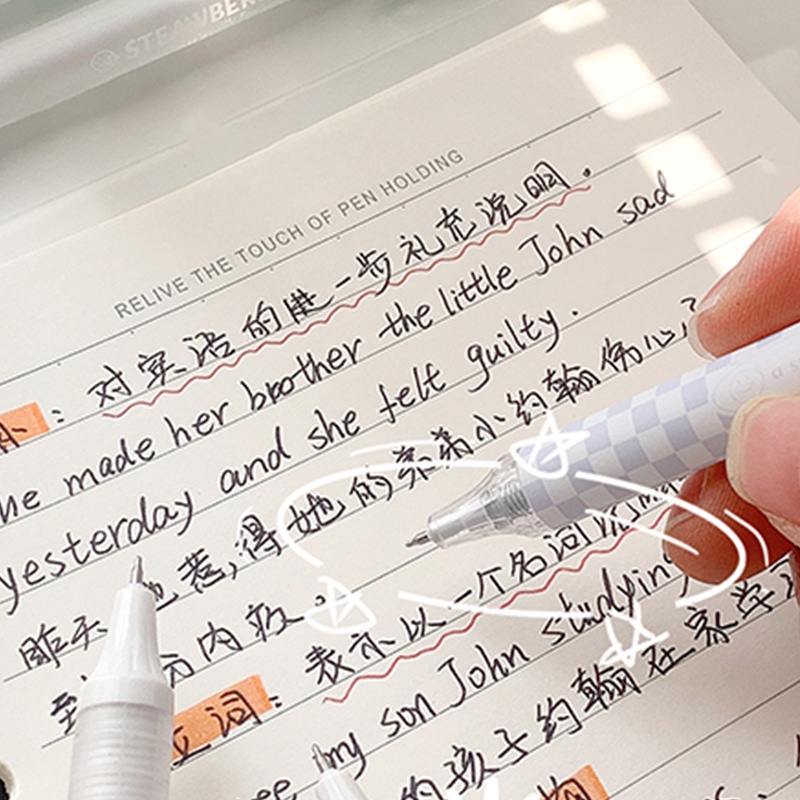 STRAWBER
RELIVE THE TOUCH OF PEN HOLDING
: 对宾语的进一步补充说明.
he made her brother the little John sad
yesterday and she felt guilty.
昨天 她惹得她的亲弟弟小约翰伤心了
到 分内疚.
词: 表示以一个名词
my son John studying
的孩子约翰在家学习